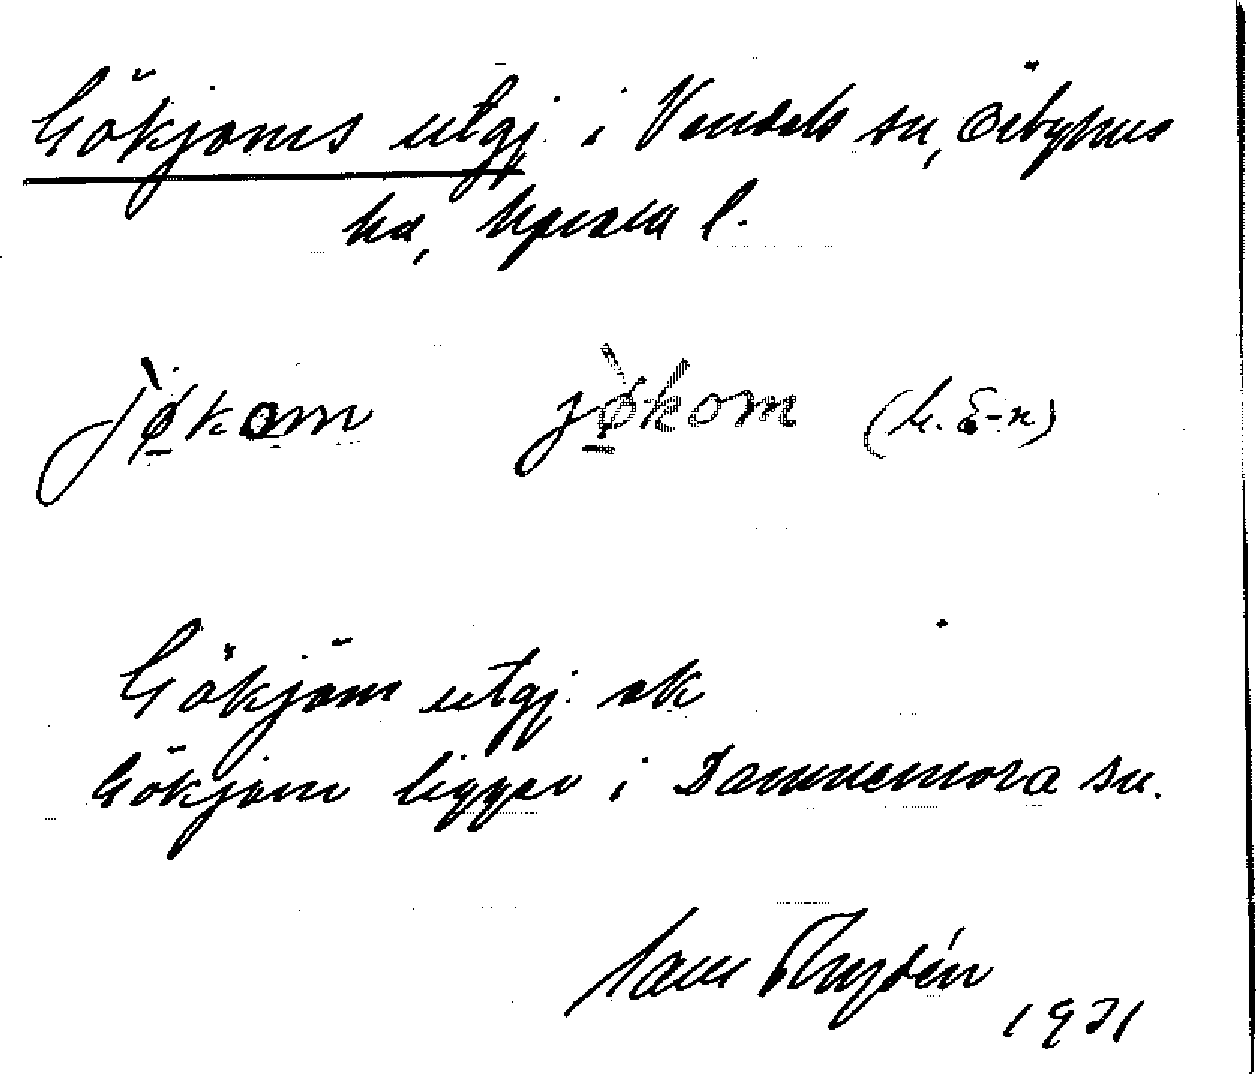 Gökjoms utgj. i Vendels sn, Örbyhus
hd, Uppsala l.
jø̀kom jø̀kom (h. ö-n)
Gökjom utgj. ok
Gökjom ligger i Dannemora sn.
Sam Rydén
1931